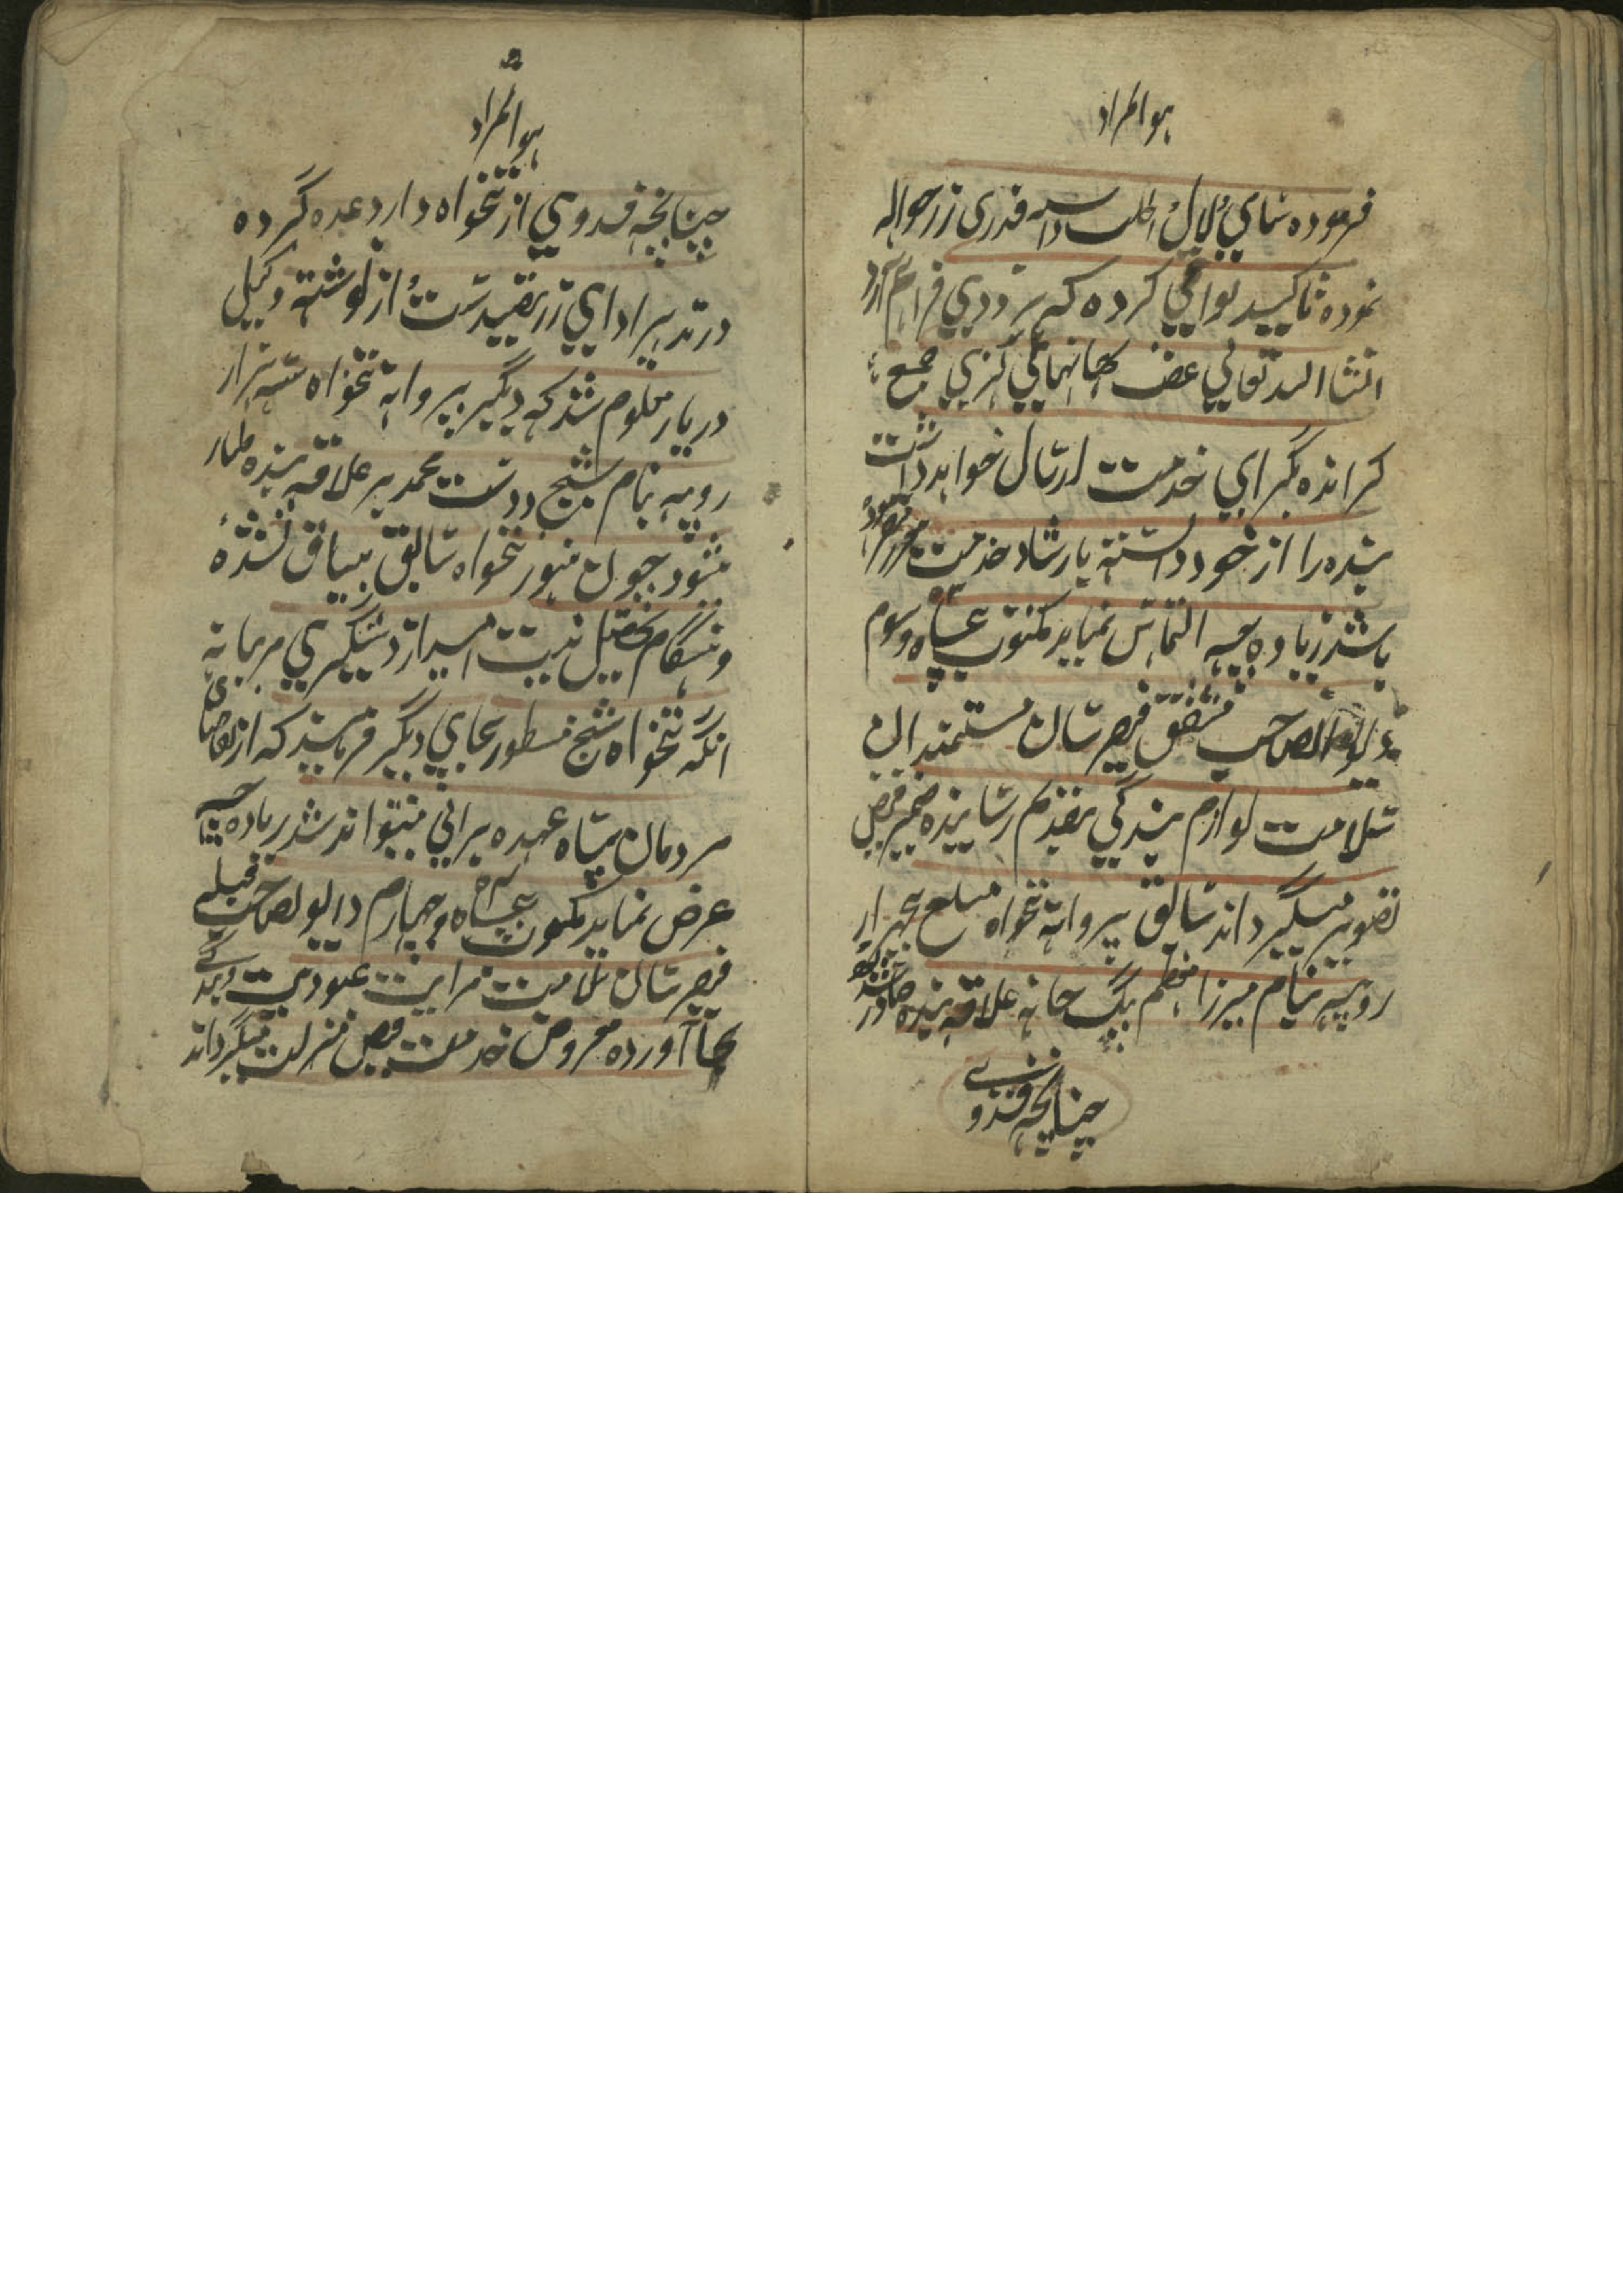 هو المراد
فرموده شای بلال طلب داسه قدری زر حواله
نموده تاکید بواقعی کرده که بزودی فراهم آرد
انشا الله تعالی عنقریب جمع
کرانده بگرای خدمت ارسال خواهد داشت
بنده را از خود دانسته بارشاد خدمت
باشند زیاده چه التماس نماید مکتوب پنجاه و سوم
دیوانصاحب مشفق فیضرسان مستمندان
سلامت لوازم بندگی بتقدیم رسانیده ضمیر فیض
تصویر میگرداند سابق پروانه تنخواه مبلغ
روپیه بنام میرزا معظم بیگ علاقه بنده صادر شد
چنانچه فدوی
هو المراد
چنانچه فدوی از تنخواه دارد عده کرده
در تدبیر ادای زر بقید ست از نوشته وکیل
دربار معلوم شد که دیگر پروانه تنخواه سه هزار
روپیه بنام شیخ دوست محمد بر علاقه بنده طیار
میشود چون هنوز تنخواه سابق بیباق نشده
و هنگام تحصیل نیست امید از دستگیری مربیانه
آنکه تنخواه شیخ مسطور بجای دیگر فرمایند که از تقاضای
مردمان سپاه عهده برائی نمیتواند شد زیاده چه
عرض نماید مکتوب پنجاه و چهارم دیوانصاحب قبله
فیضرسان سلامت مراتب عبودیت و بندگی
بجا آورده معروض خدمت فیض منزلت میگرداند